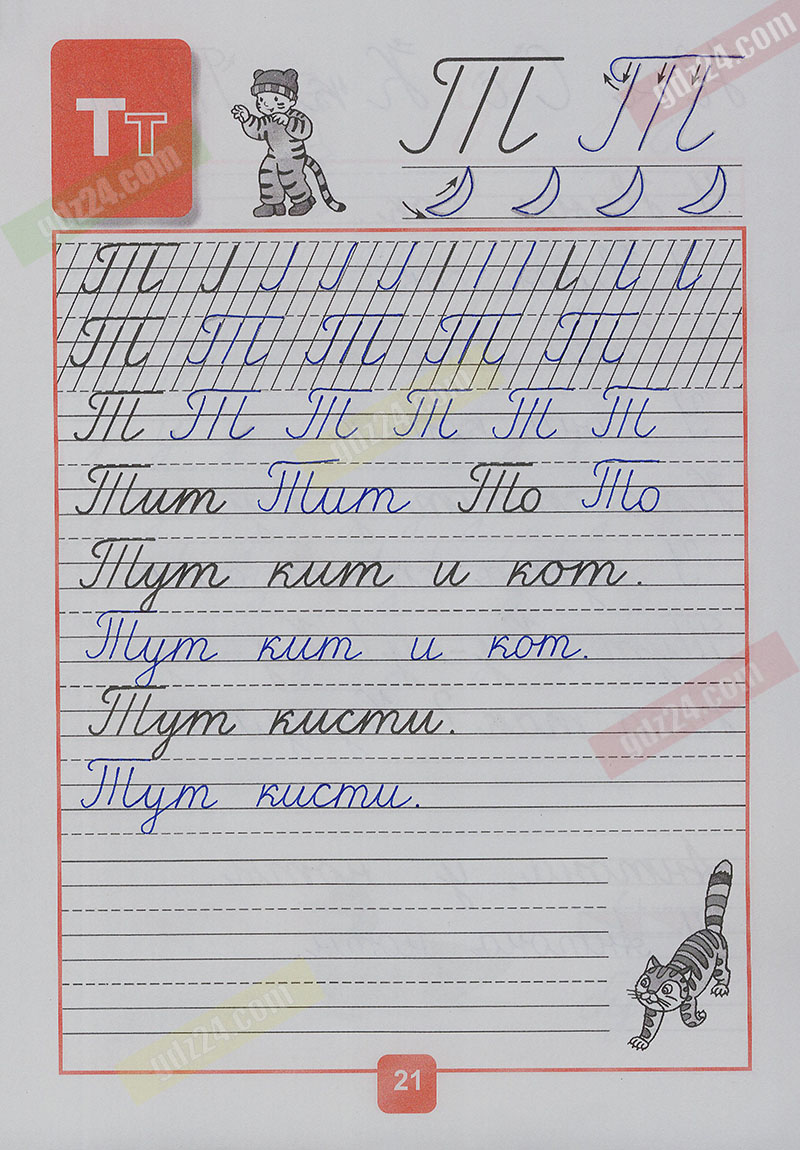 Тт Т Т
gdz24.com
gdz24.com
Т
Т Т Т Т Т
Т Т Т Т Т Т
gdz24.com
Тит Тит То То
Тут кит и кот.
Тут кит и кот.
Тут кисти.
gdz24.com
Тут кисти.
gdz24.com
21